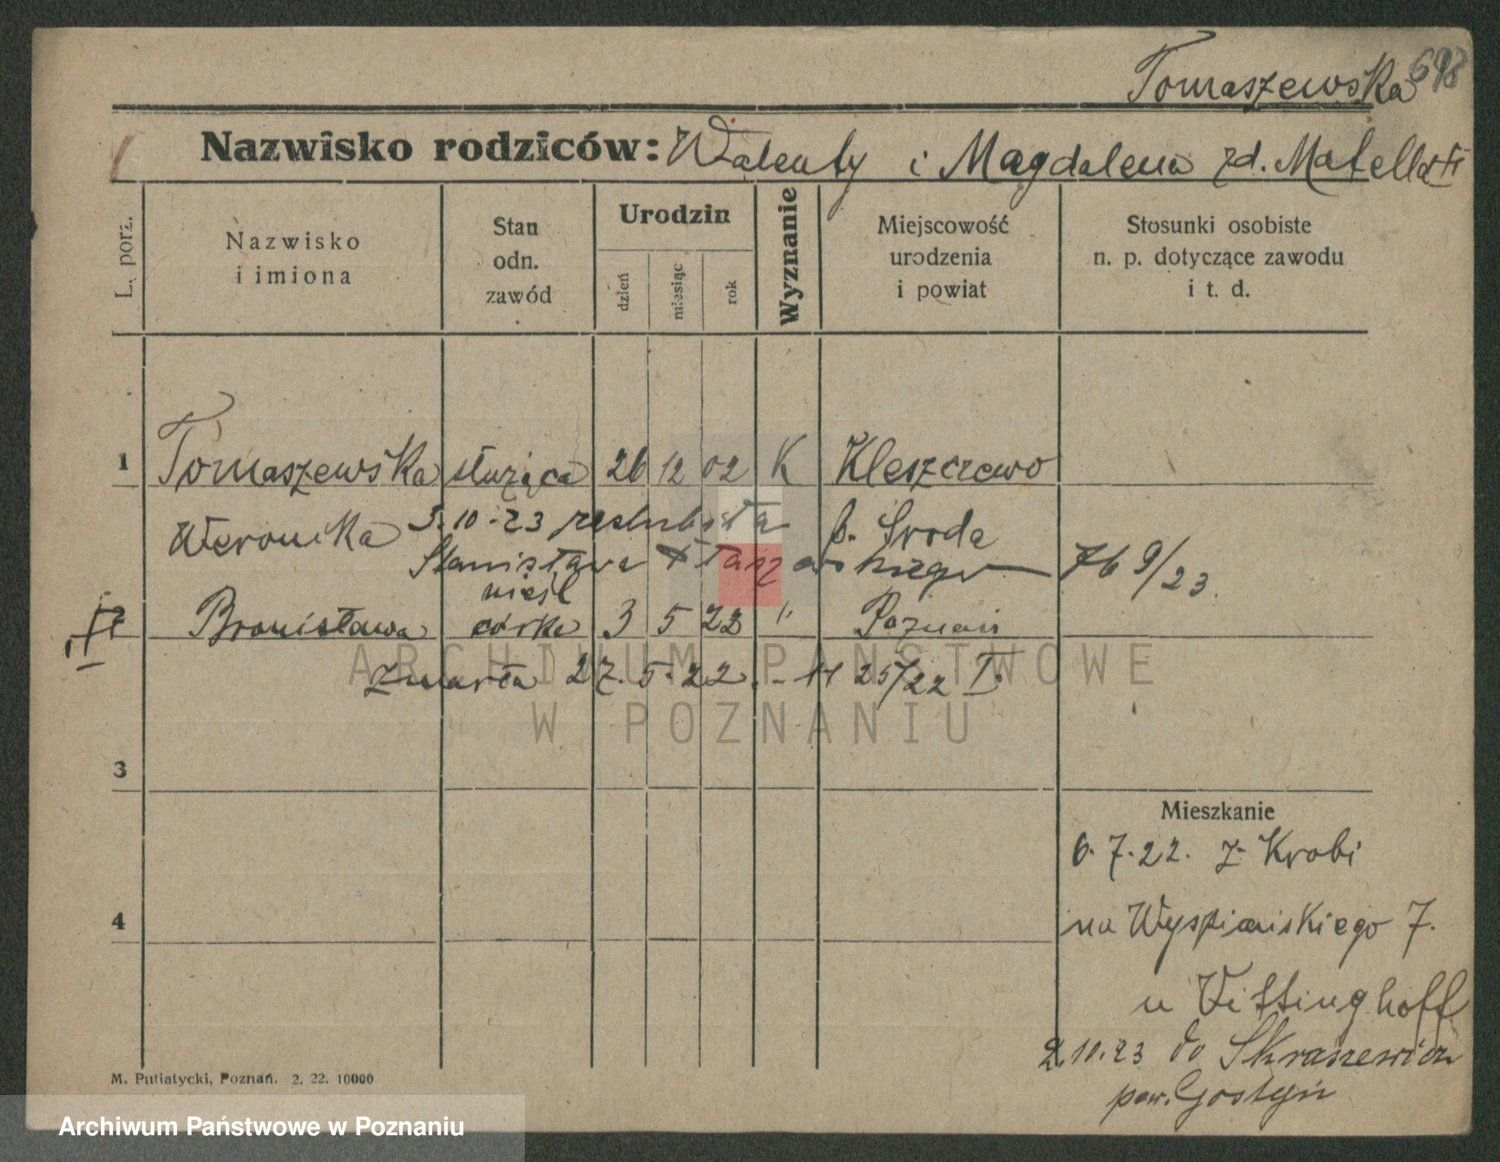 Tomaszewska 698
Nazwisko rodziców: Walenty i Magdalena zd. Matella
L. porz.
Nazwisko
i imiona
Stan
odn.
zawód
Urodzin
dzień
miesiąc
rok
Wyznanie
Miejscowość
urodzenia
i powiat
Stosunki osobiste
n. p. dotyczące zawodu
i t. d.
1 Tomaszewska służąca 26 12 02 K Kleszczewo
Weronika 3.10.23 zaślubiła p. Środa
Stanisława
76 9/23.
nieśl
2 Bronisława córka 3 5 22 " Poznań
zmarła 27. 5. 22. 25/22 I.
3
Mieszkanie
6.7.22. z Krobi
4
na Wyspiańskiego 7.
u Vittinghoff
2.10.23 do Skraszewicz
pow. Gostyń
M. Putiatycki, Poznań. 2. 22. 10000
ARCHIWUM PAŃSTWOWE
W POZNANIU
Archiwum Państwowe w Poznaniu